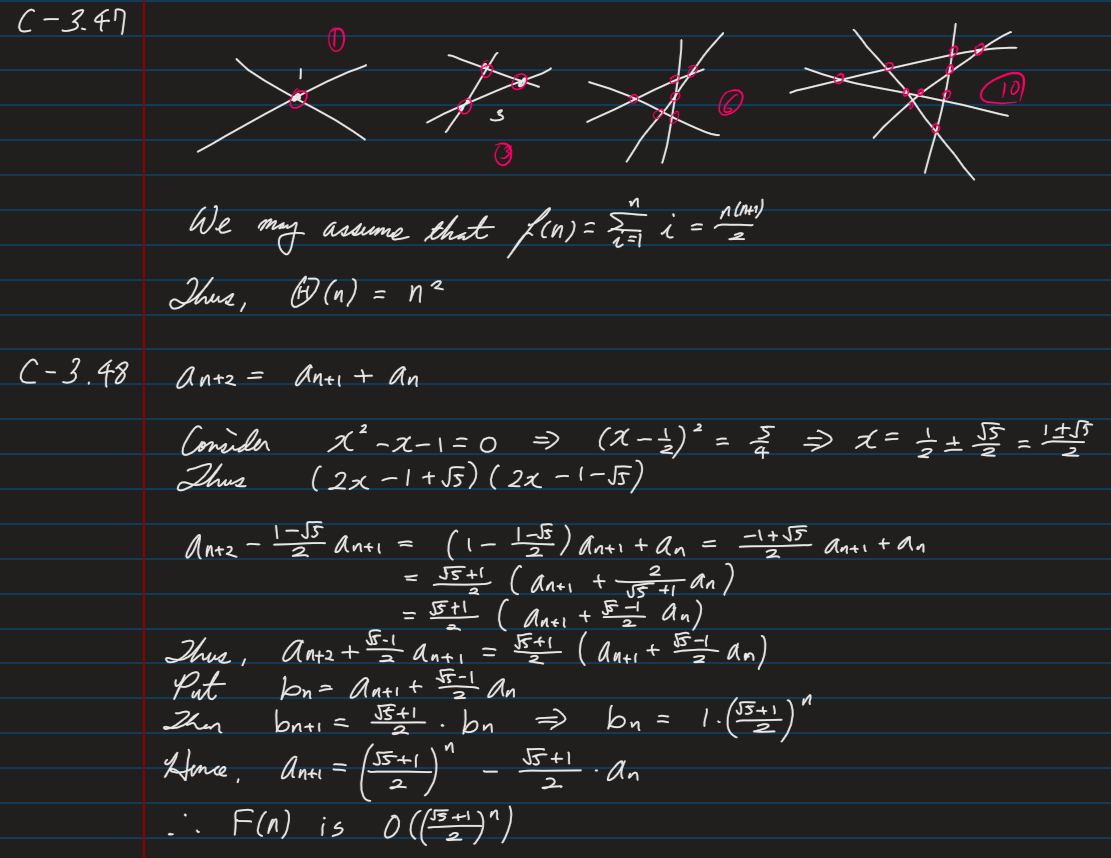 C-3.47
①
1
3
③
⑥
⑩
We may assume that f(n) = \sum_{i=1}^{n} i = \frac{n(n+1)}{2}
Thus, Ⓗ(n) = n²
C-3.48
a_{n+2} = a_{n+1} + a_n
Consider x² - x - 1 = 0 ⇒ (x - \frac{1}{2})² = \frac{5}{4} ⇒ x = \frac{1}{2} ± \frac{√5}{2} = \frac{1±√5}{2}
Thus (2x - 1 + √5)(2x - 1 - √5)
a_{n+2} - \frac{1-√5}{2} a_{n+1} = (1 - \frac{1-√5}{2}) a_{n+1} + a_n = \frac{-1+√5}{2} a_{n+1} + a_n
= \frac{√5+1}{2} (a_{n+1} + \frac{2}{√5+1} a_n)
= \frac{√5+1}{2} (a_{n+1} + \frac{√5-1}{2} a_n)
Thus, a_{n+2} + \frac{√5-1}{2} a_{n+1} = \frac{√5+1}{2} (a_{n+1} + \frac{√5-1}{2} a_n)
Put b_n = a_{n+1} + \frac{√5-1}{2} a_n
Then b_{n+1} = \frac{√5+1}{2} · b_n ⇒ b_n = 1 · (\frac{√5+1}{2})^n
Hence, a_{n+1} = (\frac{√5+1}{2})^n - \frac{√5+1}{2} · a_n
∴ F(n) is O((\frac{√5+1}{2})^n)